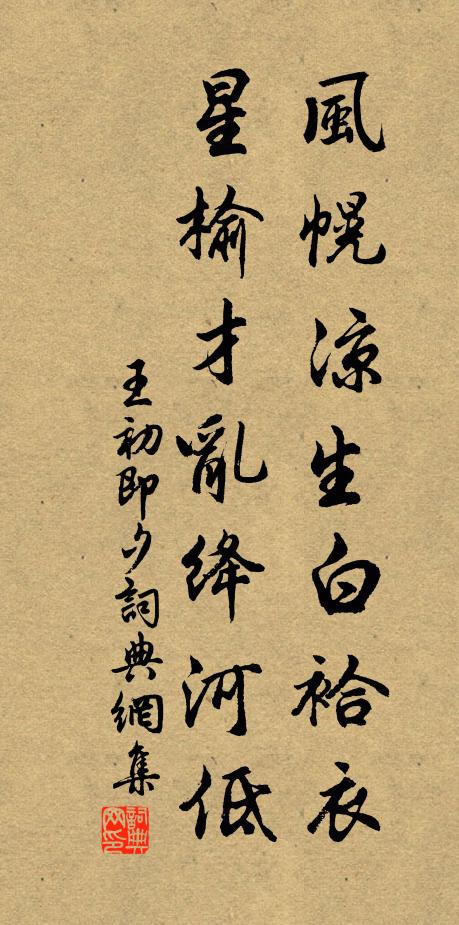 風幌涼生白袷衣
星榆才亂絳河低
王初即夕詞典網集
詞典网印